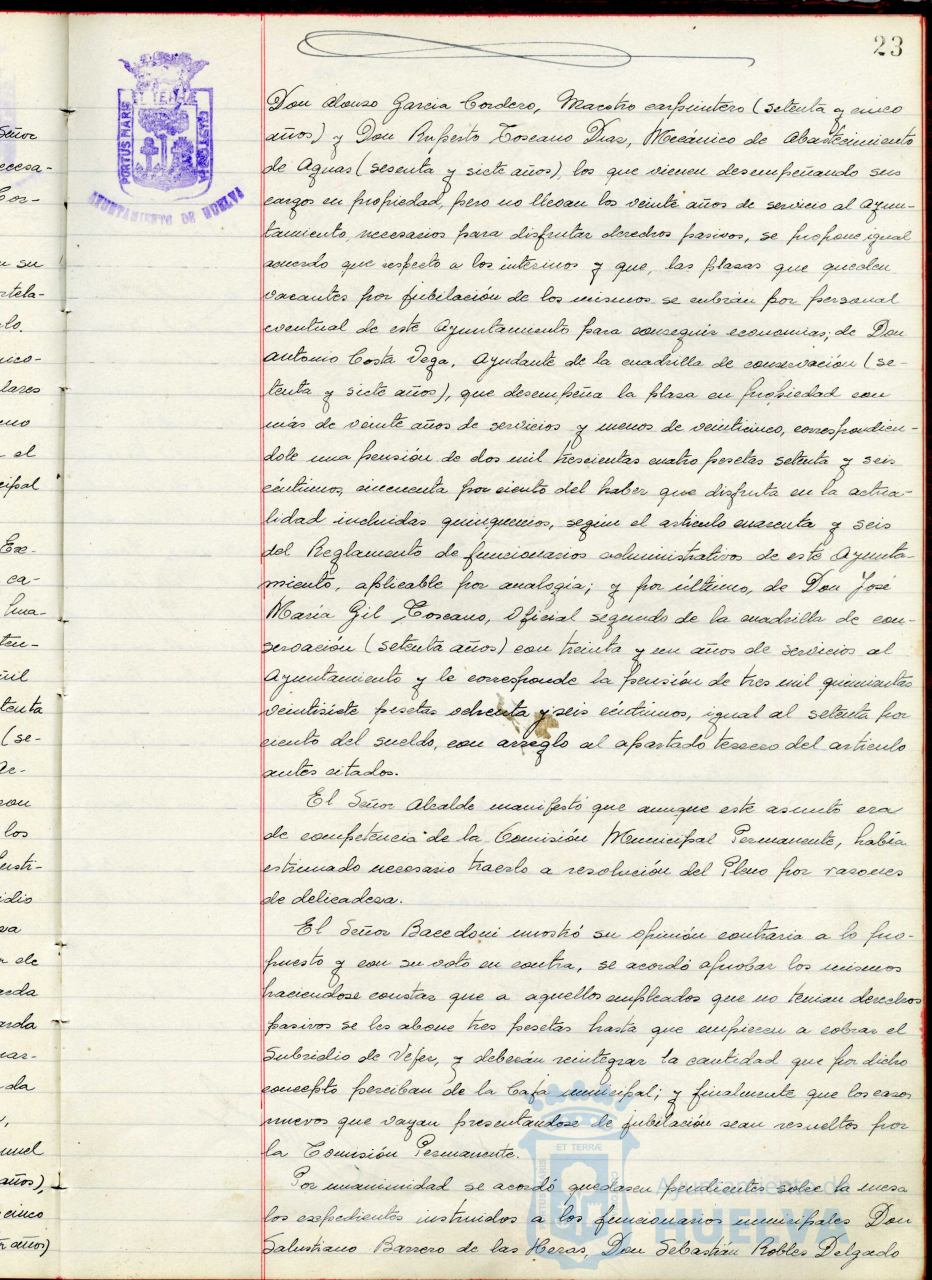 23
ET TERRÆ
PORTUS MARIS
AYUNTAMIENTO DE HUELVA
Don Alonso Garcia Cordero, Maestro carpintero (setenta y cinco
años) y Don Ruperto Toscano Diaz, Mecánico de Abastecimiento
de Aguas (sesenta y siete años), los que vienen desempeñando sus
cargos en propiedad, pero no llevan los veinte años de servicio al Ayun-
tamiento, necesarios para disfrutar derechos pasivos, se propone igual
acuerdo que respecto a los interinos y que, las plazas que queden
vacantes por jubilación de los mismos se cubran por personal
eventual de este Ayuntamiento para conseguir economias; de Don
Antonio Costa Vega, Ayudante de la cuadrilla de conservación (se-
tenta y siete años), que desempeña la plaza en propiedad con
más de veinte años de servicios y menos de veinticinco, correspondien-
dole una pensión de dos mil trescientas cuatro pesetas setenta y seis
céntimos, cincuenta por ciento del haber que disfruta en la actua-
lidad incluidas quinquenios, según el articulo cuarenta y seis
del Reglamento de funcionarios administrativos de este Ayunta-
miento, aplicable por analogia; y por último, de Don José
Maria Gil Toscano, Oficial segundo de la cuadrilla de con-
servación (setenta años) con treinta y un años de servicios al
Ayuntamiento y le corresponde la pensión de tres mil quinientas
veintisiete pesetas ochenta y seis céntimos, igual al setenta por
ciento del sueldo, con arreglo al apartado tercero del articulo
antes citados.
El Señor Alcalde manifestó que aunque este asunto era
de competencia de la Comisión Municipal Permanente, habia
estimado necesario traerlo a resolución del Pleno por razones
de delicadeza.
El Señor Bacedoni mostró su opinión contraria a lo pro-
puesto y con su voto en contra, se acordó aprobar los mismos
haciendose constar que a aquellos empleados que no tenian derechos
pasivos se les abone tres pesetas hasta que empiecen a cobrar el
Subsidio de Vejez, y deberán reintegrar la cantidad que por dicho
concepto perciban de la Caja municipal; y finalmente que los casos
nuevos que vayan presentandose de jubilación sean resueltos por
la Comisión Permanente.
Por unanimidad se acordó quedasen pendientes sobre la mesa
los expedientes instruidos a los funcionarios municipales Don
Salustiano Barrero de las Heras, Don Sebastián Robles Delgado
ET TERRÆ
Ayuntamiento de
HUELVA